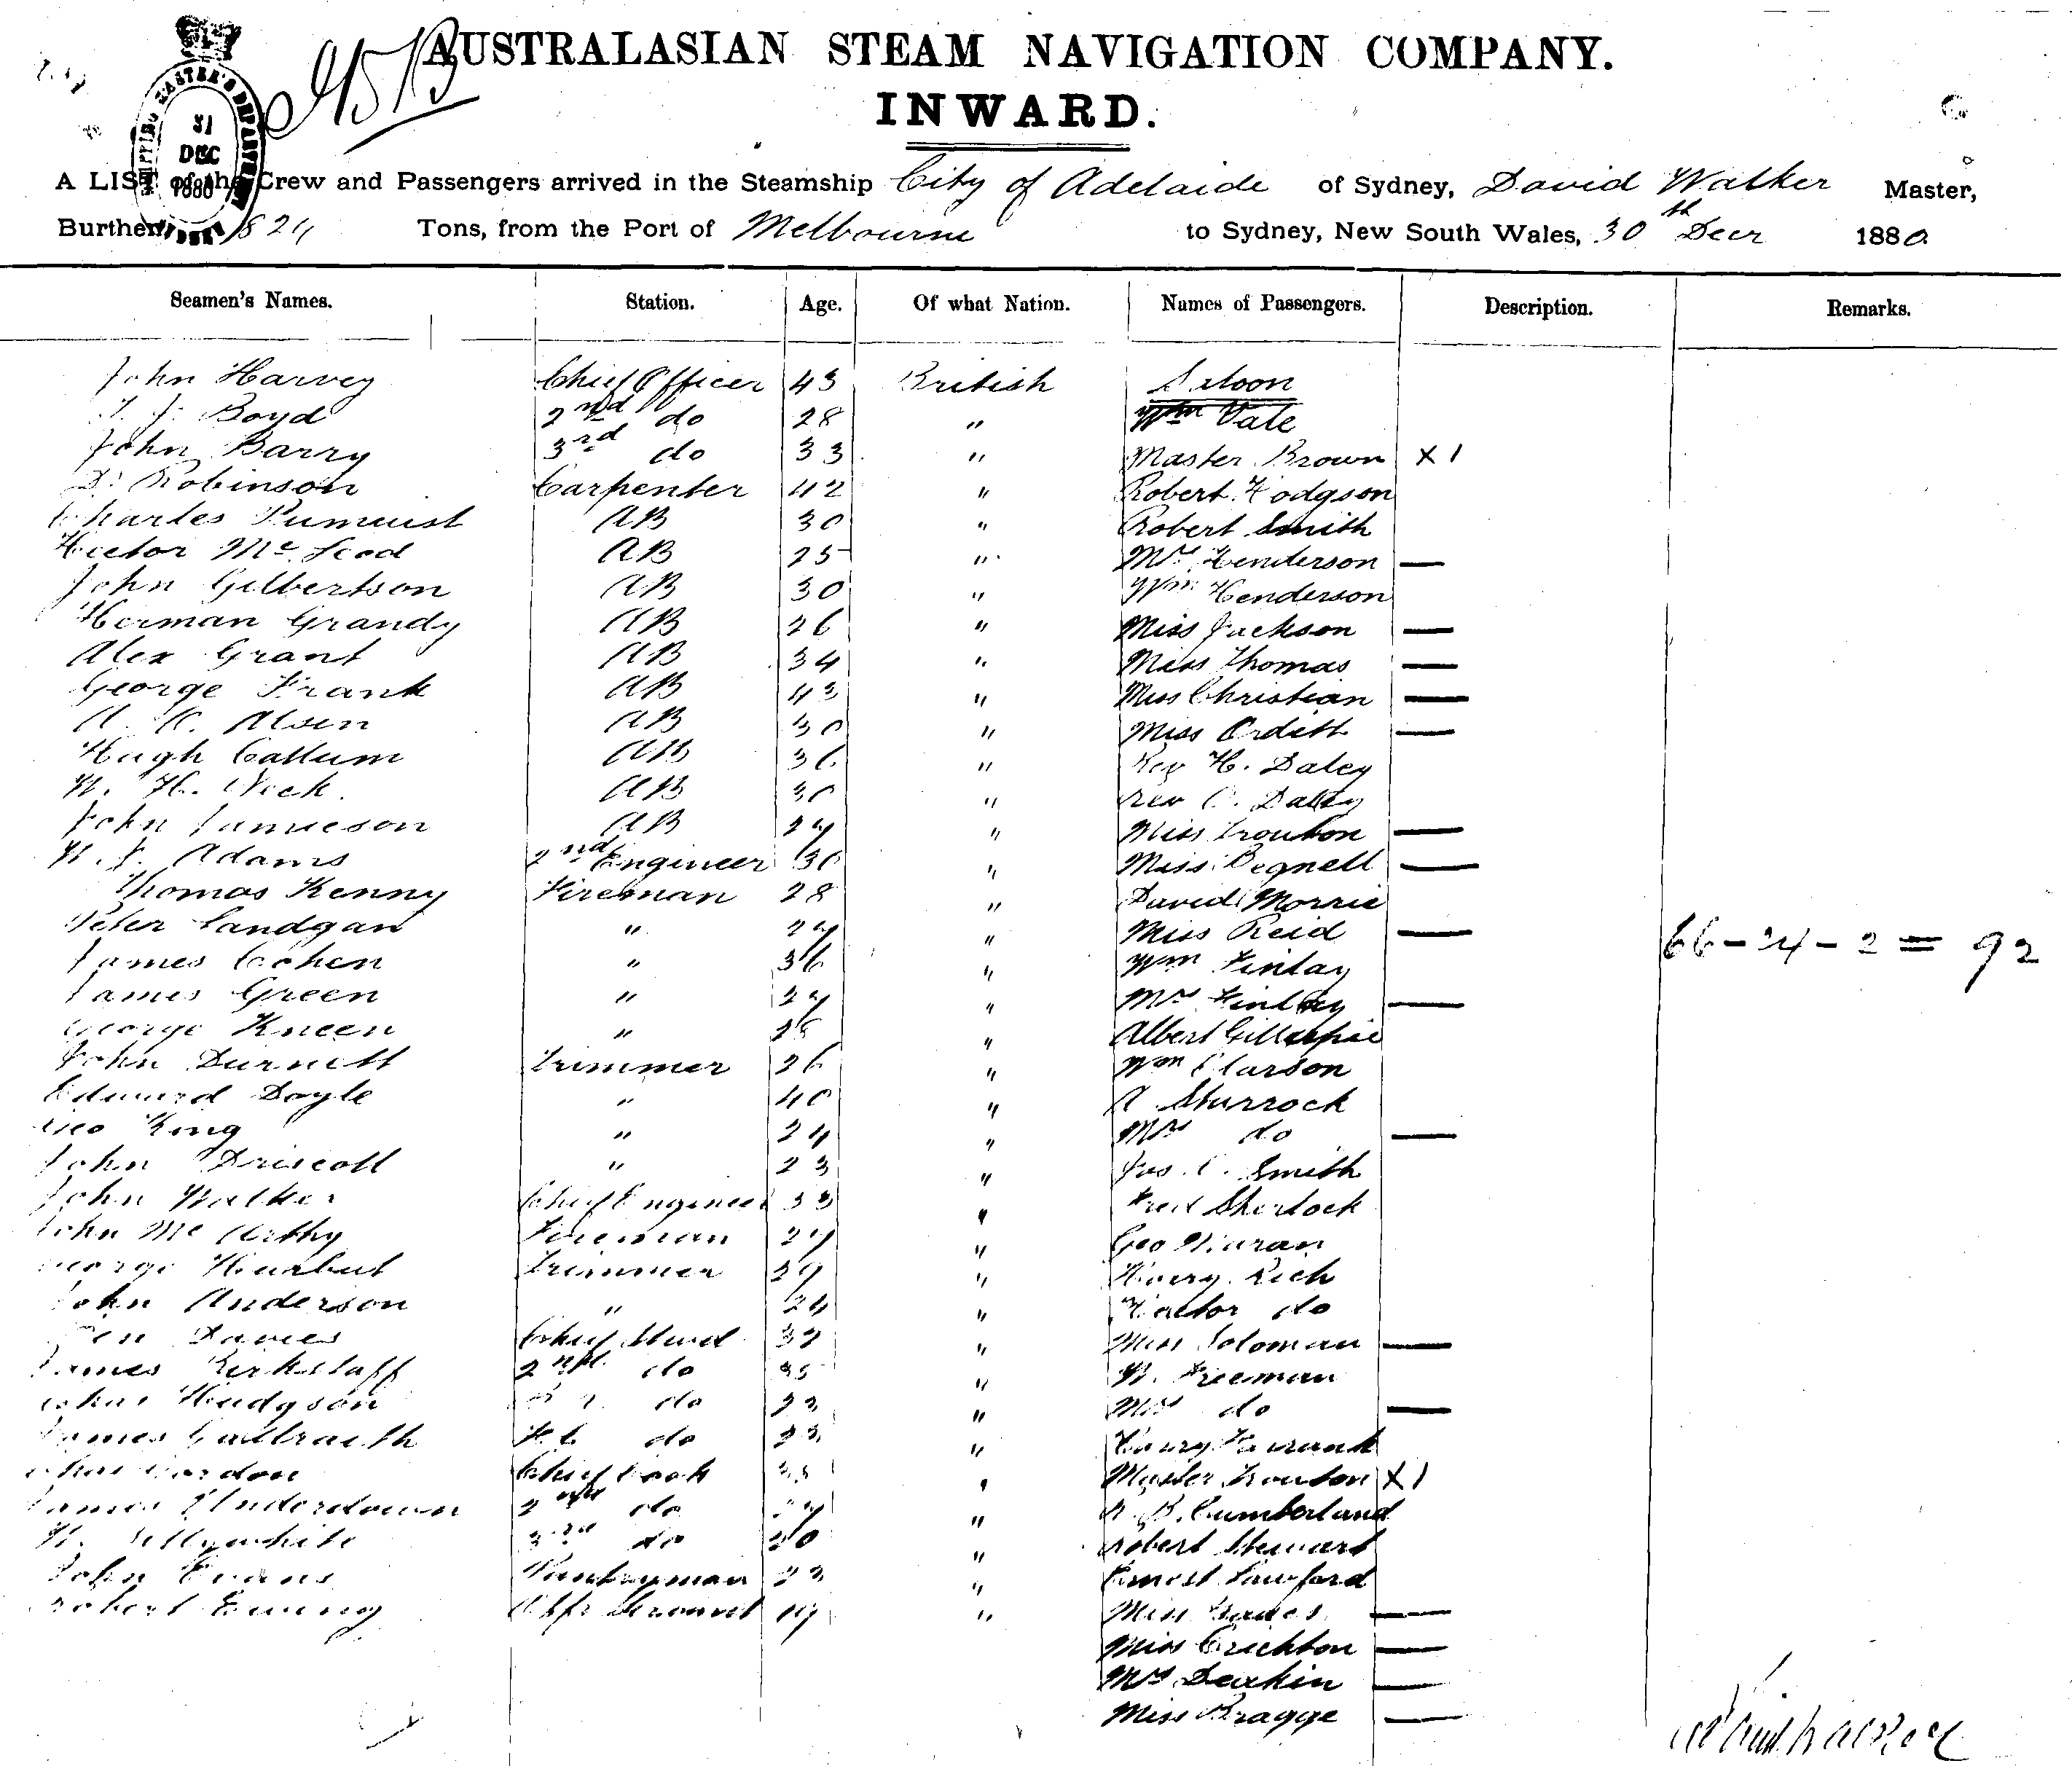 AUSTRALASIAN STEAM NAVIGATION COMPANY.
INWARD.
SHIPPING MASTER'S DEPARTMENT
31
DEC
1880
SYDNEY
A LIST of the Crew and Passengers arrived in the Steamship City of Adelaide of Sydney, David Walker Master,
Burthen 824 Tons, from the Port of Melbourne to Sydney, New South Wales, 30th Decr 1880
Seamen's Names. Station. Age. Of what Nation. Names of Passengers. Description. Remarks.
John Harvey Chief Officer 43 British Saloon
Boyd 2nd do 28 " Wm Vale
John Barry 3rd do 33 " Master Brown X 1
D. Robinson Carpenter 42 " Robert Hodgson
Charles AB 30 " Robert Smith
Hector McLeod AB 25 " Mrs Henderson —
John Gilbertson AB 30 " Wm Henderson
Herman Grandy AB 26 " Miss Jackson —
Alex Grant AB 34 " Miss Thomas —
George Frank AB 43 " Miss Christian —
Olsen AB 30 " Miss Ordish —
Hugh Callum AB 36 " Rev H. Daley
W. H. AB 30 " Rev C. Daley
John Jamieson AB 24 " Miss Trouton —
W. J. Adams 2nd Engineer 36 " Miss Begnell —
Thomas Kenny Fireman 28 " David Morris
Peter Landgan " " Miss Reid —
James Cohen " 36 " Wm Finlay
James Green " " Mrs Finlay —
George Kneen " " Albert Gillespie
John Burnett Trimmer 26 " Wm Clarson
Edward Doyle " 40 " A Sturrock
Geo King " 24 " Mrs do —
John Driscoll " 23 " Jas. C. Smith
John Walker Chief Engineer 33 " Fred Sherlock
John McCarthy Fireman " Geo
George Hurbut Trimmer 29 " Harry Rich
John Anderson " 24 " Hector do
Davies Chief Stewd " Miss Soloman —
James Kirkstaff 2nd do 35 " W. Freeman
Hudgson do " Mrs do —
James Galbraith F C do 23 " Henry
Chas Gordon Chief Cook " Master Trouton X 1
James Underdown 2nd do " B. Cumberland
W. Sillywhite 3rd do 20 " Robert Stewart
John Evans Pantryman 23 " Ernest Lawford
Robert Ewing 19 " Miss —
Miss Crichton —
Mrs Deakin —
Miss Bragge —
66 - 24 - 2 = 92